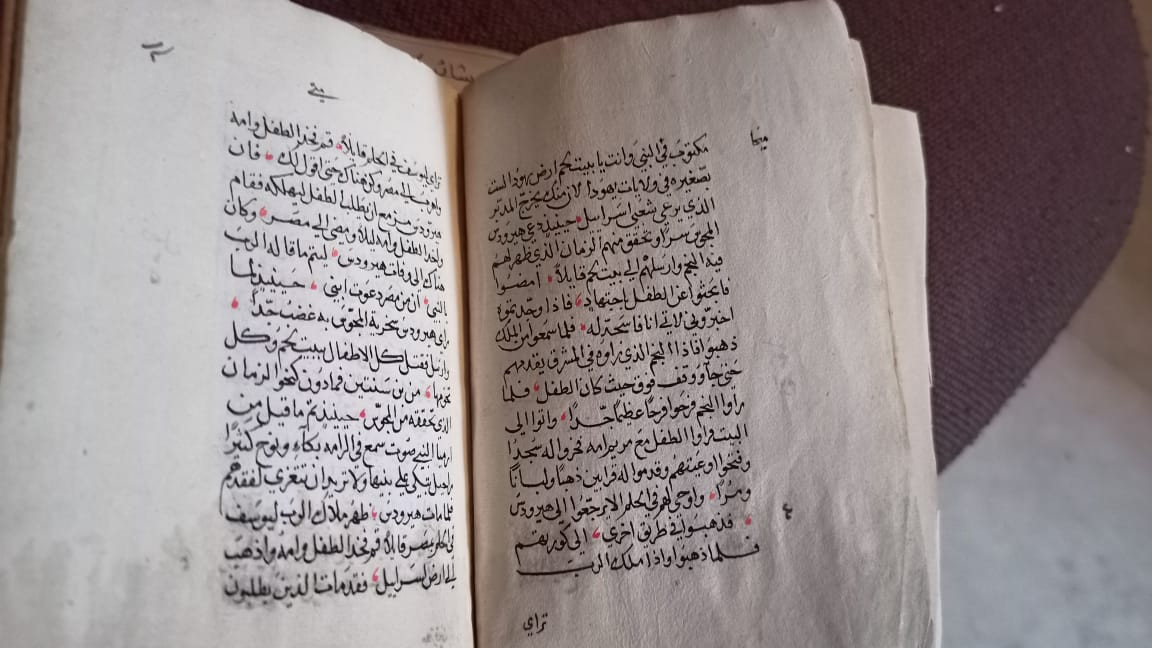 مكتوب في النبي وانت يا بيت لحم ارض يهودا لست
بصغيره في ولايات يهودا لان منك يخرج المدبّر
الذي يرعي شعبي اسراييل حينيذ دعي هيرودس
المجوس سرًا وتحقق منهم الزمان الذي ظهر لهم
فيه النجم وارسلهم الي بيت لحم قايلاً امضوا
فابحثوا عن الطفل باجتهاد فاذا وجدتموه
اخبروني لاتي انا فاسجد له فلما سمعوا من الملك
ذهبوا فاذا النجم الذي راوه في المشرق يقدمهم
حتي جا ووقف فوق حيث كان الطفل فلما
راوا النجم فرحوا فرحًا عظيمًا جدًا واتوا الي
البيت فراوا الطفل مع مريم امه فخروا له سجدًا
وفتحوا اوعيتهم وقدموا له قرابين ذهبًا ولبانًا
ومرًا واوحي لهم في الحلم الا يرجعوا الي هيرودس
فذهبوا في طرق اخري الي كورتهم
فلما ذهبوا واذا ملك الرب
تراي
متي
تراي ليوسف في الحلم قايلاً قم فخذ الطفل وامه
واهرب الي مصر وكن هناك حتي اقول لك فان
هيرودس مزمع ان يطلب الطفل ليهلكه فقام
واخذ الطفل وامه ليلا ومضي الي مصر وكان
هناك الي وفات هيرودس ليتم ما قاله الرب
بالنبي ان من مصر دعوت ابني حينيذ لما
راي هيرودس سخرية المجوس به غضب جدًا
وارسل فقتل كل الاطفال ببيت لحم وكل
تخومها من بن سنتين فما دون كنحو الزمان
الذي تحققه من المجوس حينيذ تم ما قيل من
ارميا النبي صوت سمع في الرامه بكاء ونوح كثيرًا
راحيل تبكي علي بنيها ولا تريد ان تتعزي لفقدهم
فلما مات هيرودس ظهر ملاك الرب ليوسف
في الحلم بمصر قايلاً قم فخذ الطفل وامه واذهب
الي ارض اسراييل فقد مات الذين يطلبون